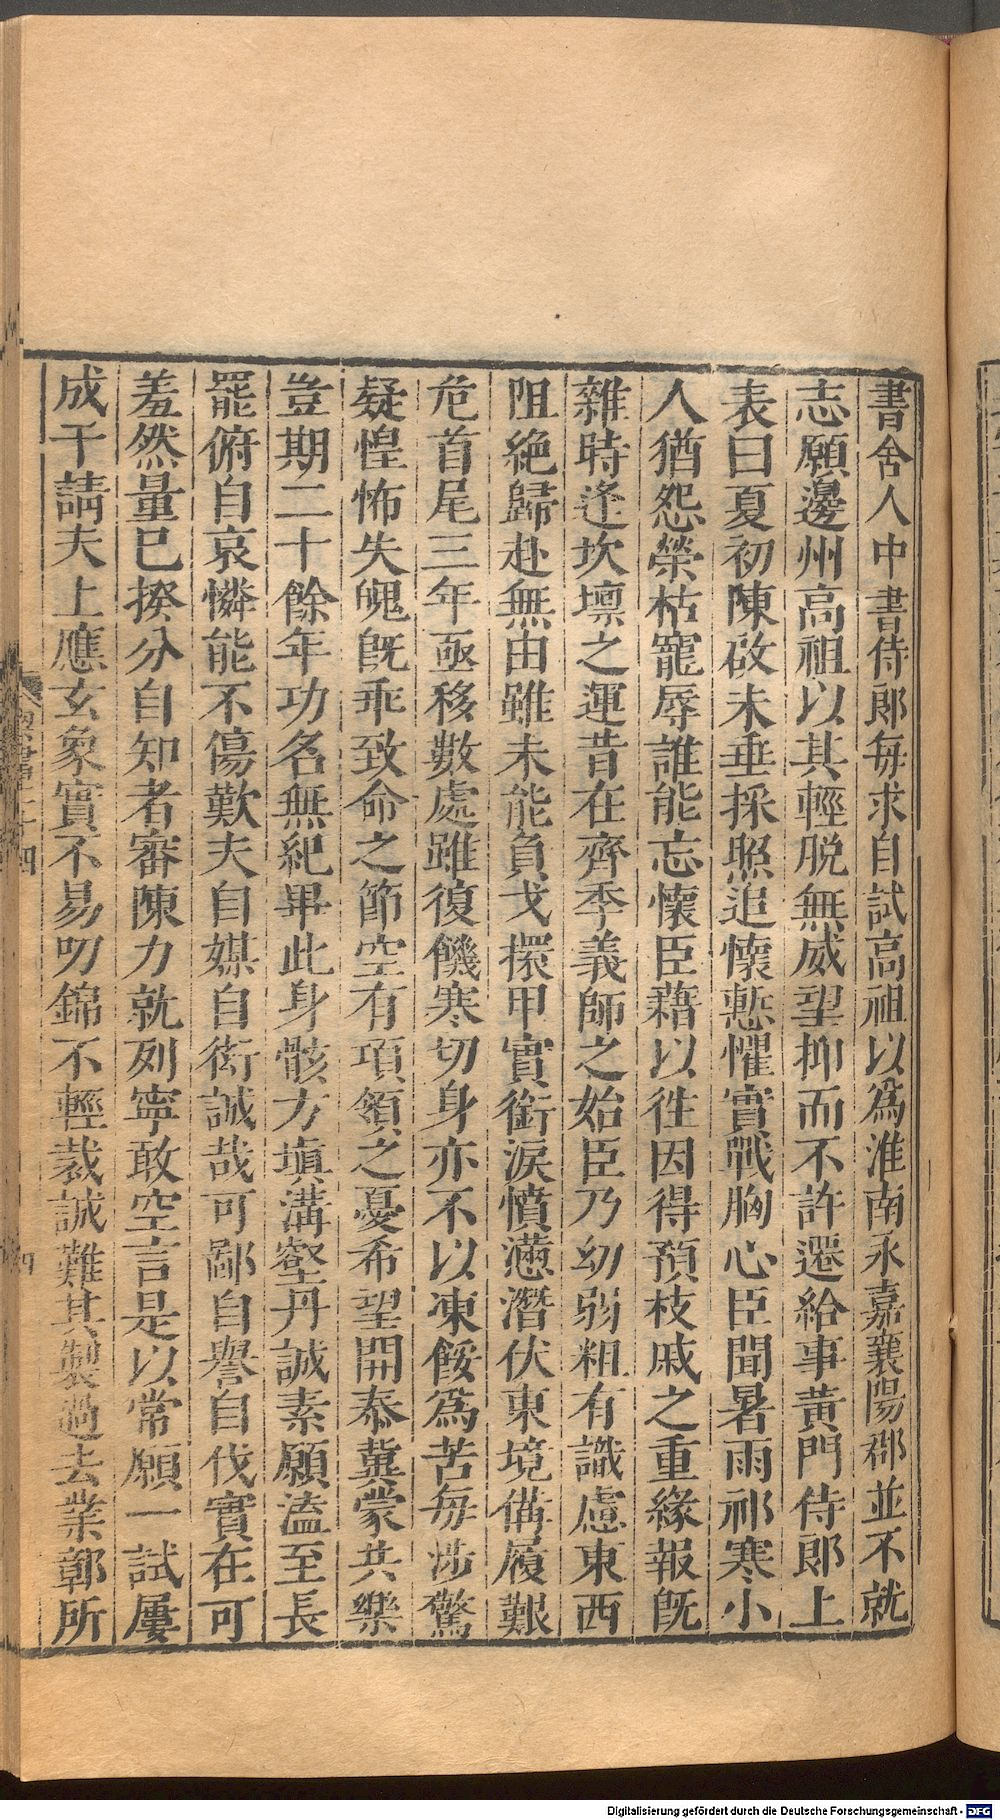 書舍人中書侍郎每求自試高祖以爲淮南永嘉襄陽郡並不就
志願邊州高祖以其輕脫無威望抑而不許遷給事黃門侍郎上
表曰夏初陳啟未垂採照追懷慙懼實戰胸心臣聞暑雨祁寒小
人猶怨榮枯寵辱誰能忘懷臣藉以徃因得預枝戚之重緣報旣
雜時逢坎壈之運昔在齊季義師之始臣乃幼弱粗有識慮東西
阻絶歸赴無由雖未能負戈擐甲實銜淚憤懣潛伏東境備履艱
危首尾三年亟移數處雖復饑寒切身亦不以凍餒爲苦每涉驚
疑惶怖失魄旣乖致命之節空有項領之憂希望開泰冀蒙共樂
豈期二十餘年功名無紀畢此身骸方塡溝壑丹誠素願溘至長
罷俯自哀憐能不傷歎夫自媒自衒誠哉可鄙自譽自伐實在可
羞然量已揆分自知者審陳力就列寧敢空言是以常願一試屢
成干請夫上應玄象實不易叨錦不輕裁誠難其製過去業鄣所